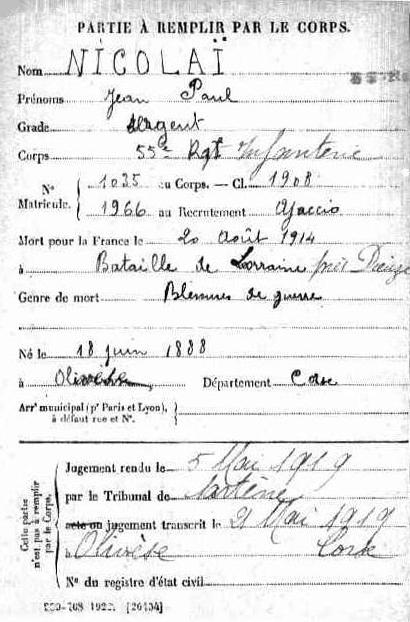 PARTIE À REMPLIR PAR LE CORPS.
Nom NICOLAÏ
Prénoms Jean Paul
Grade Sergent
Corps 55e Rgt Infanterie
N° Matricule. { 1035 au Corps. — Cl. 1908
1966 au Recrutement Ajaccio
Mort pour la France le 20 Août 1914
à Bataille de Lorraine près Dieuze
Genre de mort Blessures de guerre
Né le 18 juin 1888
à Olivèse Département Corse
Arrt municipal (pr Paris et Lyon), à défaut rue et N°. }
Cette partie n'est pas à remplir par le Corps.
Jugement rendu le 5 Mai 1919
par le Tribunal de Sartène
acte ou jugement transcrit le 21 Mai 1919
à Olivèse Corse
N° du registre d'état civil
[26434]